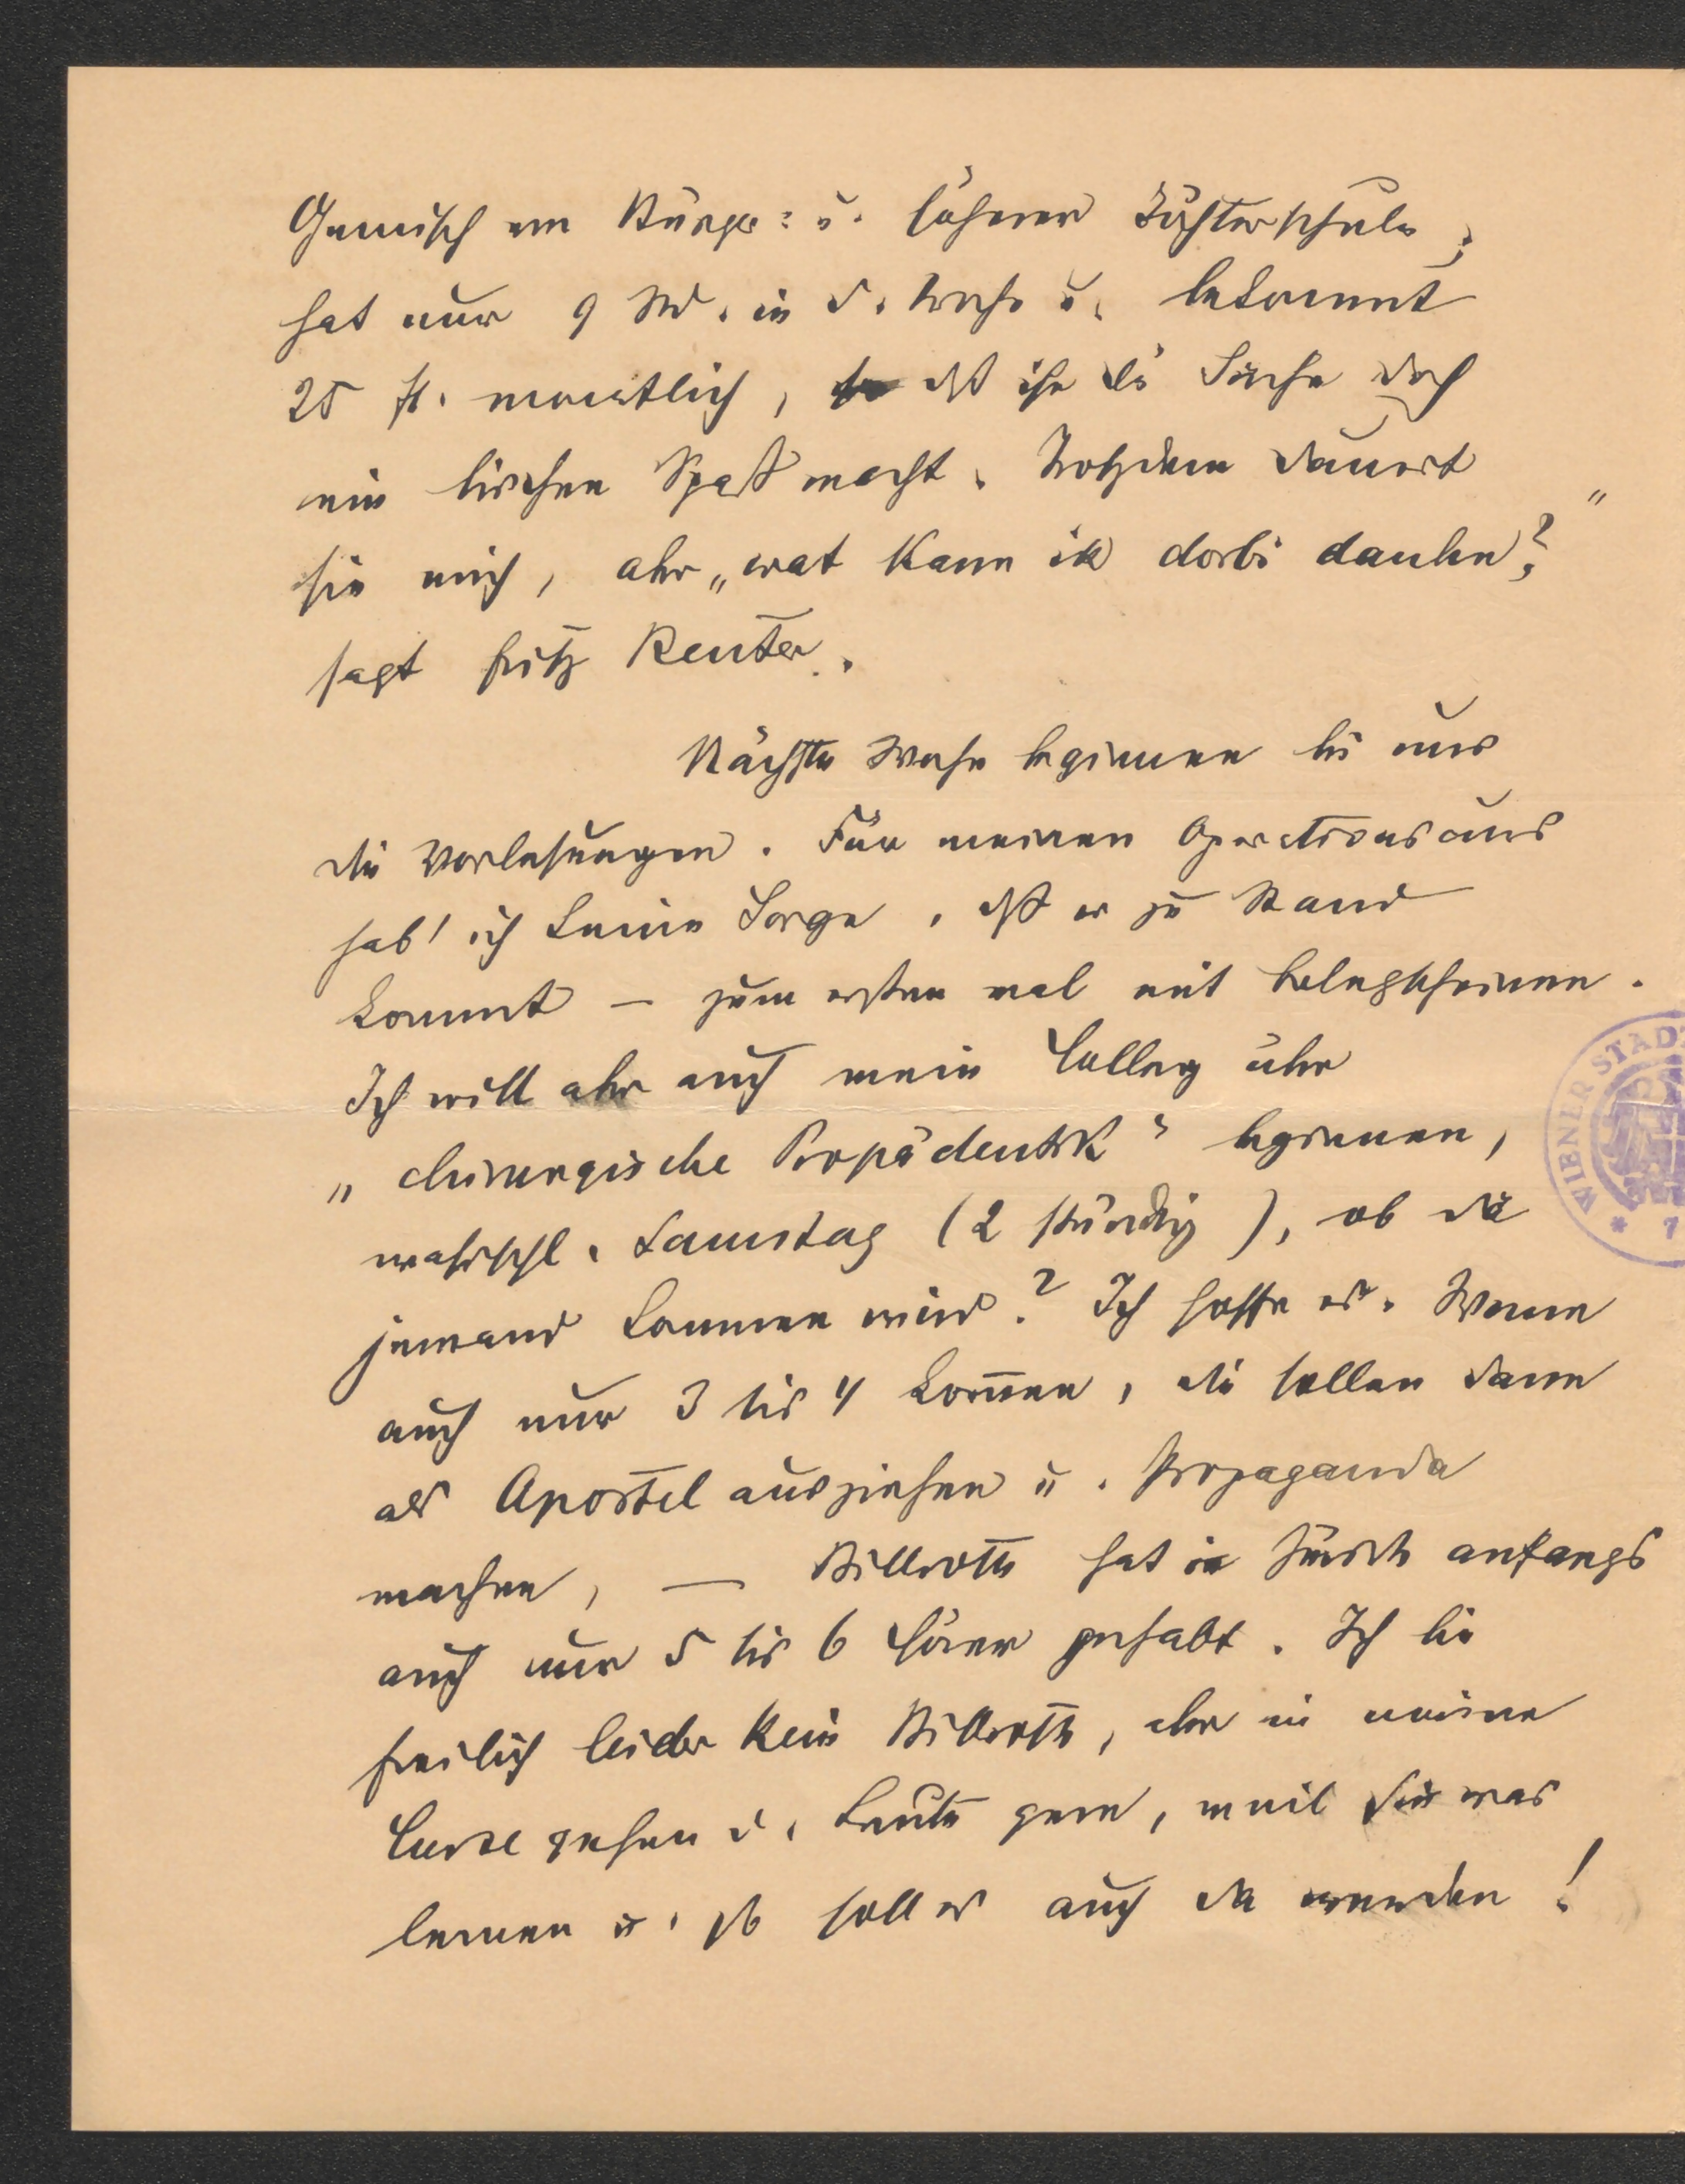 Gemisch von Bürger- u. höherer Töchterschule;
hat nur 9 Std. in d. Woche u. bekommt
25 fl. monatlich, daß ihr die Sache doch
ein bischen Spaß macht. Trotzdem dauert
sie mich, aber „wat kann ik dorbi dauhn?“
sagt Fritz Reuter.
Nächste Woche beginnen bei uns
die Vorlesungen. Für meinen Operationscurs
hab' ich keine Sorge, daß er zu Stand
kommt – zum ersten mal mit Belegscheinen.
Ich will aber auch mein Colleg über
„chirurgische Propädeutik“ beginnen,
wahrschl. Samstag (2 stündig), ob da
jemand kommen wird? Ich hoffe es. Wenn
auch nur 3 bis 4 kom̅en, die sollen dann
als Apostel ausziehen u. Propaganda
machen, – Billroth hat in Zürich anfangs
auch nur 5 bis 6 Hörer gehabt. Ich bin
freilich leider kein Billroth, aber in meine
Curse gehen d. Leute gern, weil sie was
lernen u. so soll es auch da werden!
WIENER STADT
* 1